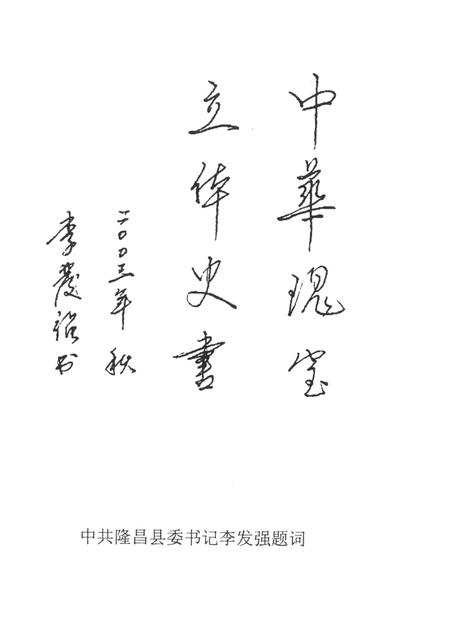 中華瑰宝
立体史書
二〇〇三年秋
李發強书
中共隆昌县委书记李发强题词